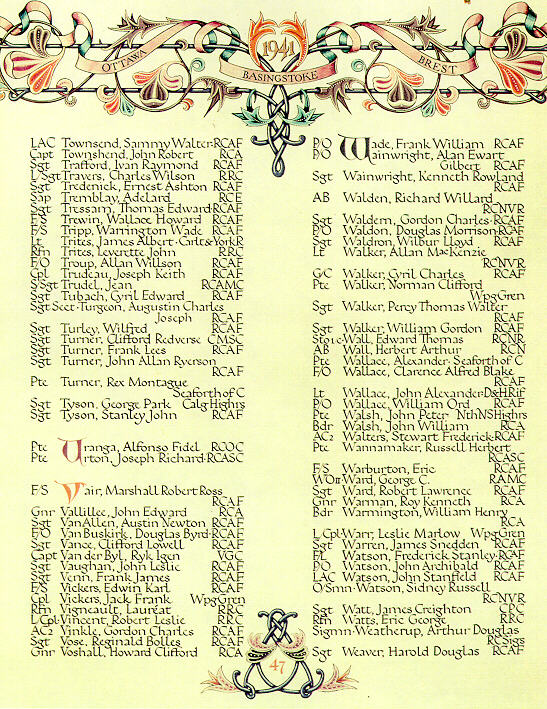 1941
OTTAWA BASINGSTOKE BREST
LAC Townsend, Sammy Walter RCAF
Capt Townshend, John Robert RCA
Sgt Trafford, Ivan Raymond RCAF
L/Sgt Travers, Charles Wilson RRC
Sgt Tredenick, Ernest Ashton RCAF
Sap Tremblay, Adelard RCE
Sgt Tressam, Thomas Edward RCAF
F/S Trewin, Wallace Howard RCAF
F/S Tripp, Warrington Wade RCAF
Lt Trites, James Albert Carlt&YorkR
Rfn Trites, Leverette John RRC
F/O Troup, Allan Willson RCAF
Cpl Trudeau, Joseph Keith RCAF
S/Sgt Trudel, Jean RCAMC
Sgt Tubach, Cyril Edward RCAF
Sgt Turgeon, Augustin Charles
Joseph RCAF
Sgt Turley, Wilfred RCAF
Sgt Turner, Clifford Redverse CMSC
Sgt Turner, Frank Lees RCAF
Sgt Turner, John Allan Ryerson
RCAF
Pte Turner, Rex Montague
Seaforth of C
Sgt Tyson, George Park Calg Highrs
Sgt Tyson, Stanley John RCAF
Pte Uranga, Alfonso Fidel RCOC
Pte Urton, Joseph Richard RCASC
F/S Vair, Marshall Robert Ross
RCAF
Gnr Vallillee, John Edward RCA
Sgt VanAllen, Austin Newton RCAF
F/O VanBuskirk, Douglas Byrd RCAF
Sgt Vance, Clifford Lowell RCAF
Capt Van der Byl, Ryk Igen VGC
Sgt Vaughan, John Leslie RCAF
Sgt Venn, Frank James RCAF
F/S Vickers, Edwin Karl RCAF
Cpl Vickers, Jack Frank WpgGren
Rfn Vigneault, Lauréat RRC
L/Cpl Vincent, Robert Leslie RRC
AC2 Vinkle, Gordon Charles RCAF
Sgt Vose, Reginald Bolles RCAF
Gnr Voshall, Howard Clifford RCA
P/O Wade, Frank William RCAF
P/O Wainwright, Alan Ewart
Gilbert RCAF
Sgt Wainwright, Kenneth Rowland
RCAF
AB Walden, Richard Willard
RCNVR
Sgt Waldern, Gordon Charles RCAF
P/O Waldon, Douglas Morrison RCAF
Sgt Waldron, Wilbur Lloyd RCAF
Lt Walker, Allan MacKenzie
RCNVR
G/C Walker, Cyril Charles RCAF
Pte Walker, Norman Clifford
WpgGren
Sgt Walker, Percy Thomas Walter
RCAF
Sgt Walker, William Gordon RCAF
Sto1c Wall, Edward Thomas RCNR
AB Wall, Herbert Arthur RCN
Pte Wallace, Alexander Seaforth of C
F/O Wallace, Clarence Alfred Blake
RCAF
Lt Wallace, John Alexander D&HRif
P/O Wallace, William Ord RCAF
Pte Walsh, John Peter NthNSHighrs
Bdr Walsh, John William RCA
AC2 Walters, Stewart Frederick RCAF
Pte Wannamaker, Russell Herbert
RCASC
F/S Warburton, Eric RCAF
WOII Ward, George C. RAMC
Sgt Ward, Robert Lawrence RCAF
Gnr Warman, Roy Kenneth RCA
Bdr Warmington, William Henry
RCA
L/Cpl Warr, Leslie Marlow WpgGren
Sgt Warren, James Snedden RCAF
F/L Watson, Frederick Stanley RCAF
P/O Watson, John Archibald RCAF
LAC Watson, John Stanfield RCAF
O/Smn Watson, Sidney Russell
RCNVR
Sgt Watt, James Creighton CPC
Rfn Watts, Eric George RRC
Sigmn Weatherup, Arthur Douglas
RCSigs
Sgt Weaver, Harold Douglas RCAF
47